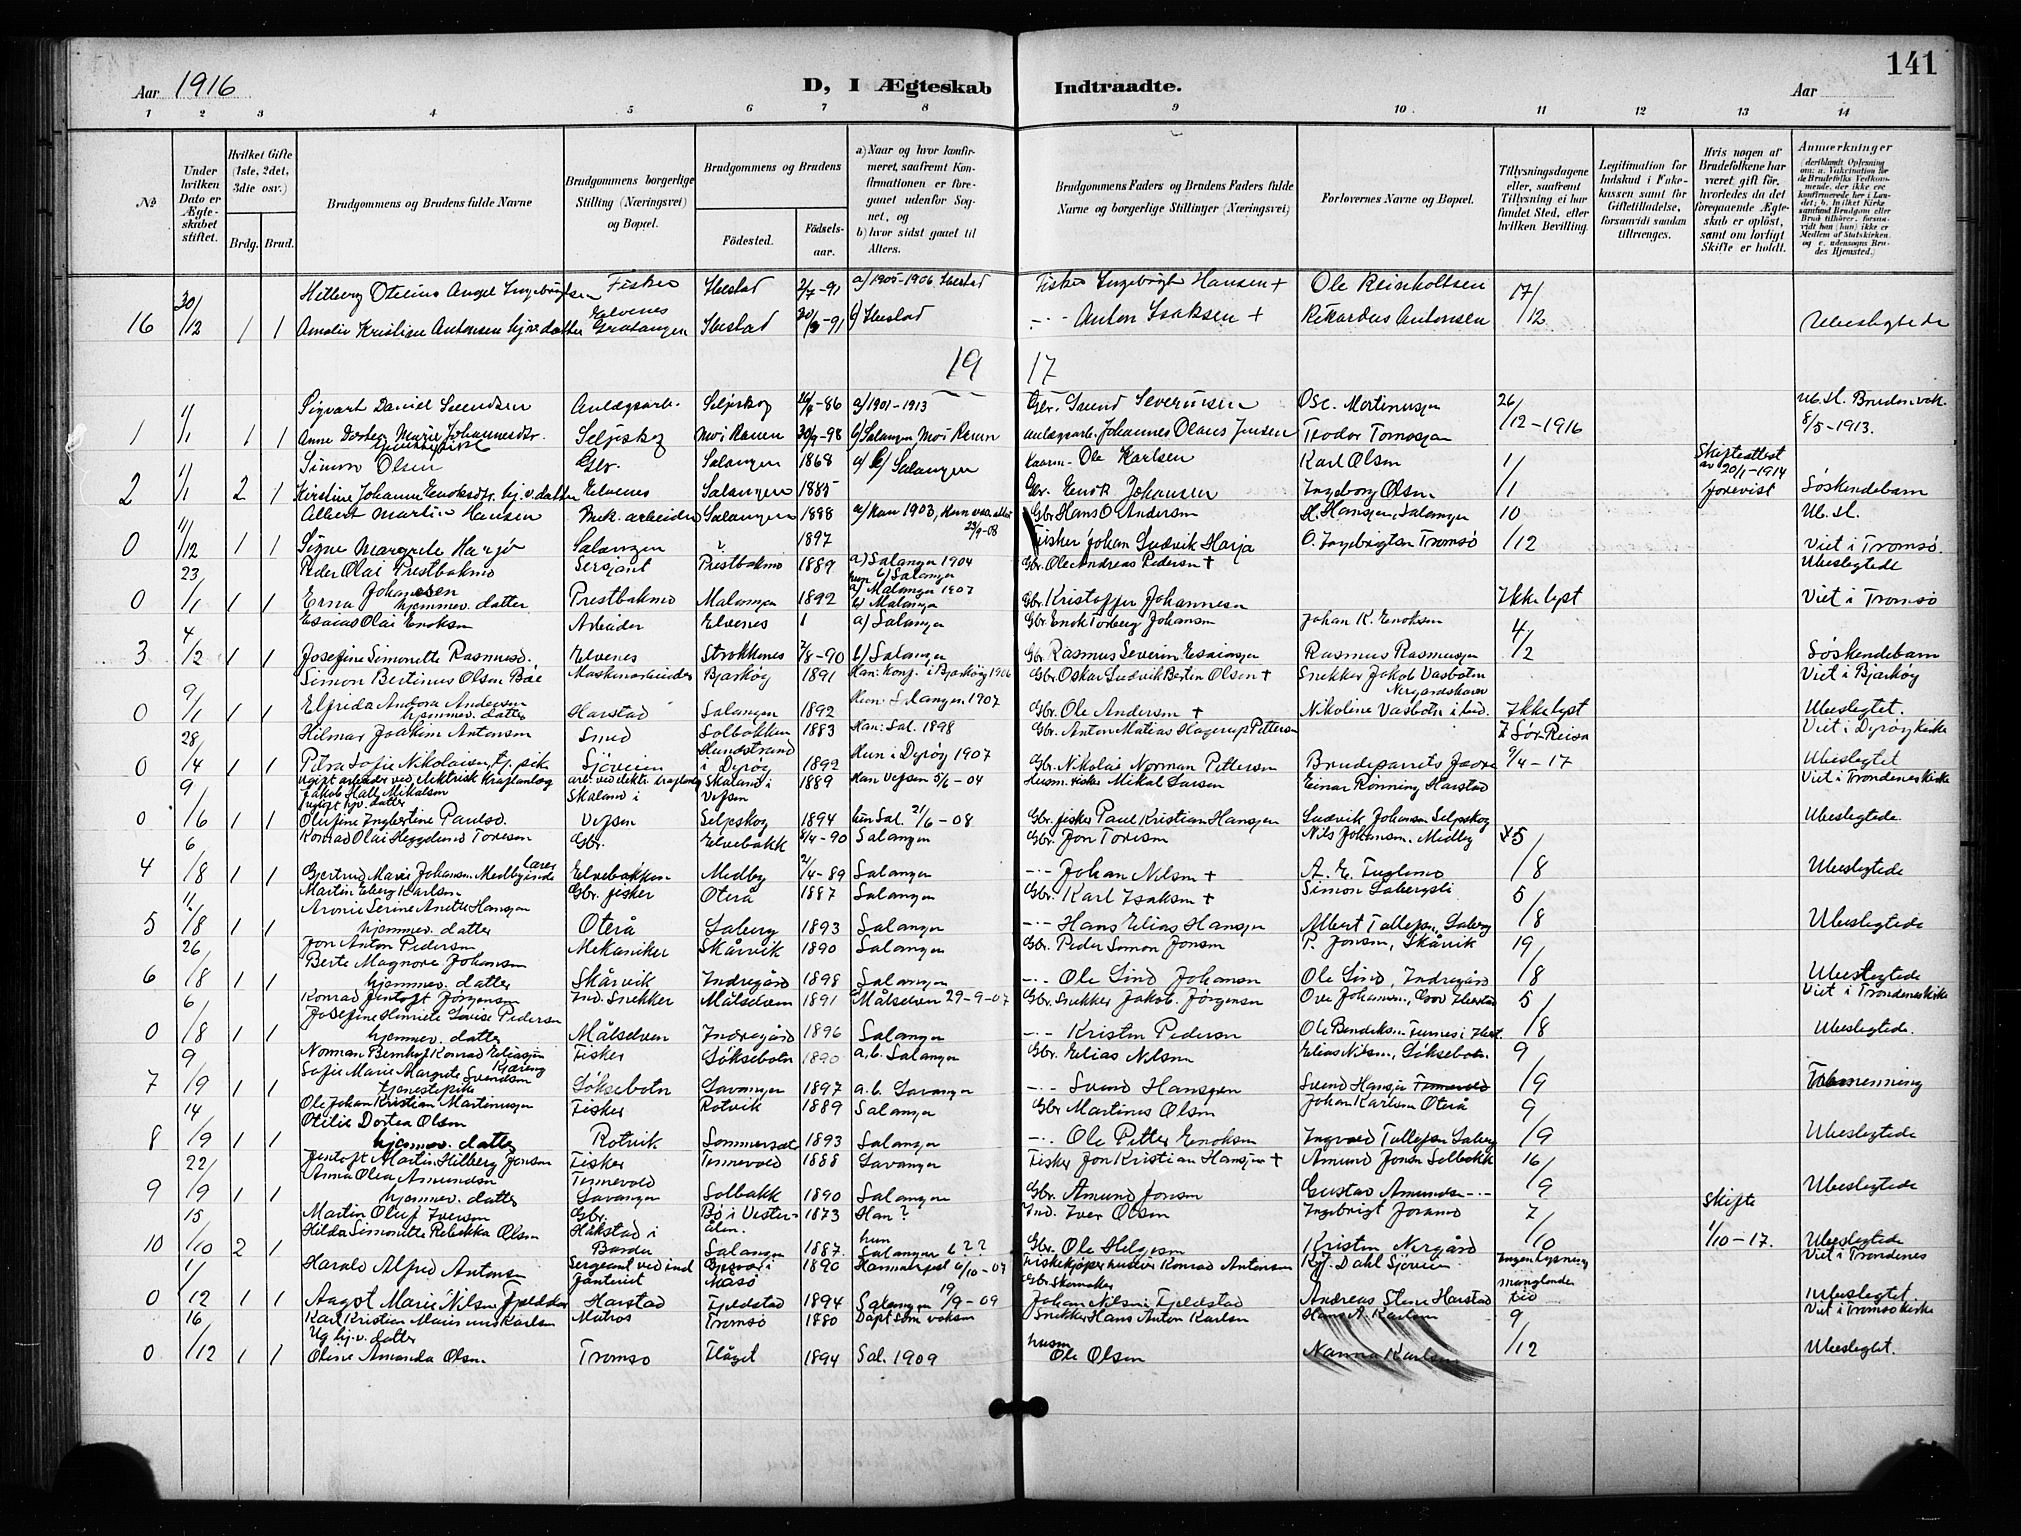 141
Aar 1916
D, I Ægteskab Indtraadte.
Aar
1 2 3 4 5 6 7 8 9 10 11 12 13 14
No
Under hvilken Dato er Ægteskabet stiftet.
Hvilket Gifte (1ste, 2det, 3die osv.)
Brdg. Brud.
Brudgommens og Brudens fulde Navne
Brudgommens borgerlige Stilling (Næringsvei) og Bopæl.
Brudgommens og Brudens
Födested.
Födselsaar.
a) Naar og hvor konfirmeret, saafremt Konfirmationen er foregaaet udenfor Sognet, og
b) hvor sidst gaaet til Alters.
Brudgommens Faders og Brudens Faders fulde Navne og borgerlige Stillinger (Næringsvei)
Forlovernes Navne og Bopæl.
Tillysningsdagene eller, saafremt Tillysning ei har fundet Sted, efter hvilken Bevilling.
Legitimation for Indskud i Enkekassen samt for Giftetilladelse, forsaavidt saadan tiltrænges.
Hvis nogen af Brudefolkene har været gift før, hvorledes da det foregaaende Ægteskab er oplöst, samt om lovligt Skifte er holdt.
Anmærkninger
30/ Hilberg Otelius Angel Ingebrigtsen Fisker Ibestad 2/7-91 a) 1905-1906 Ibestad Fisker Ingebrigt Hansen + Ole Reinholtsen 17/
16 /12 1 1 Amalie Kristine Antonsen hjv. datter Elvenes Gratangen Ibestad -91 b) Ibestad -"- Anton Isaksen + Rikardus Antonsen /12 Ubeslegtede
19 17
1/ Sigvart Daniel Svendsen Anlægsarb. Seljeskog -86 a) 1901-1913 Gbr. Svend Severinsen Osc. Martinussen 26 Ub.sl. Bruden vak.
1 /1 1 1 Anne Dorthea Marie Johannesdtr. Seljeskog Mo i Ranen -98 b) Salangen, Mo i Ranen anlægsarb. Johannes Olaus Jensen Teodor Tomassen /12-1916 8/5-1913.
1/ Simon Olsen Gbr. Salangen 1868 a/ b/ Salangen Ole Karlsen Karl Olsen 1/ Skifteattest av 20/1-1914
2 /1 2 1 Kirstine Johanne Enoksdtr. hj.v. datter Elvenes Salangen 1885 Gbr. Enok Johansen Ingeborg Olsen /1 forevist Søskendebarn
11/ Albert Martin Hansen arbeider Salangen 1888 a) Han 1903, Hun 23/9-08 Gbr Hans O Andersen H. Hansen, Salangen 10 Ub. sl.
0 /12 1 1 Signe Margrete Harjo Salangen " 1897 Fisker Johan Ludvik Harja O. Ingebrigtsen Tromsø /12 Viet i Tromsø.
23 Peder Olai Prestbakmo Sersjant Prestbakmo 1889 a) Salangen 1904 b) Salangen Gbr. Ole Andreas Pedersen + Ubeslegtede
0 /1 1 1 Erna Johansen hjemmev. datter Prestbakmo Malangen 1892 a) Malangen 1907 b) Malangen Gbr. Kristoffer Johannesen Ikke lyst Viet i Tromsø
4/ Esaias Olai Enoksen Arbeider Elvenes a) Salangen Gbr. Enok Torberg Johansen Johan K. Enoksen 4/
3 /2 1 1 Josefine Simonette Rasmusd. Elvenes Strokkenes 7/8-90 b) Salangen Gbr. Rasmus Severin Esaiassen Rasmus Rasmussen /2 Søskendebarn
9/ Simon Bertinus Olsen Bøe Maskinarbeider Bjarkøy 1891 Han: Konf. i Bjarkøy 1906 Gbr. Oskar Ludvik Bertin Olsen + Snekker Jakob Vasbotn Nergårdshavn Viet i Bjarkøy
0 /1 1 1 Elfrida Andora Andersen hjemmev. datter Harstad Salangen 1892 Hun: Salangen 1907 Gbr. Ole Andersen + Nikoline Vasbotn Ikke lyst Ubeslegtet.
28 Hilmar Joakim Antonsen Smed Solbakken 1883 Han: Sal. 1898 Gbr. Anton Matias Hagerup Pettersen I Sør-Reisa Viet i Dyrøy kirke
0 /4 1 1 Petra Sofie Nikolaisen tj. pike Sjøveien Hundstrand i Dyrøy 1892 Hun i Dyrøy 1907 Gbr. Nikolai Norman Pettersen Brudeparrets fædre 9/4-17 Ubeslegtet
9/ ugift arbeider ved elektrisk kraftanlæg Jakob Hall Mikalsen arb. ved elektr. kraftanlæg Skaland i Vefsen 1889 Han Vefsen 5/6-04 Husm. fisker Mikal Larsen Einar Rönning Harstad Viet i Trondenes kirke
0 /6 1 1 ugift hjv. datter Olufine Ingbertine Paulsd. Vefsen Seljeskog 1894 hun Sal. 21/6-08 Gbr. fisker Paul Kristian Hansen Ludvik Johansen Seljeskog Ubeslegtede
6 Konrad Olai Heggelund Toresen Gbr. Elvebakk 8/4-90 Salangen Gbr. Jon Toresen Nils Johansen, Medby 5/
4 /8 1 1 Gjertrud Marie Johansen Medby lærerinde Elvebakken Medby 2/4-89 Salangen -"- Johan Nilsen + A. E. Fuglemo /8 Ubeslegtede
11/ Martin Eberg Karlsen Gbr. fisker Oterå 1887 Salangen Gbr. Karl Isaksen + Simon Labergsli 5
5 /8 1 1 Aronie Serine Anette Hansen hjemmev. datter Oterå Laberg 1893 Salangen -"- Hans Elias Hansen Albert Tollefsen, Laberg /8 Ubeslegtede
26 Jon Anton Pedersen Mekaniker Skårvik 1890 Salangen Gbr. Peder Simon Jonsen P. Jonsen, Skårvik 19/
6 /8 1 1 Berte Magnore Johansen hjemmev. datter Skårvik Indregård 1898 Salangen -"- Ole Lind Johansen Ole Lind, Indregård /8 Ubeslegtede
6/ Konrad Jentoft Jørgensen Ind. Snekker Målselven 1891 Målselven 29-9-07 Gbr. Snekker Jakob Jørgensen Ove Johansen, Ibestad 5/ Viet i Trondenes kirke
0 /8 1 1 Josefine Henriete Lovise Pedersen hjemmev. datter Målselven Indregård 1896 Salangen -"- Kristen Pedersen Ole Bendiksen /8 Ubeslegtede.
9/ Norman Bernhof Konrad Eliassen Fisker Løksebotn 1890 a.b. Salangen Gbr. Elias Nilsen Elias Nilsen, Løksebotn 9
7 /9 1 1 Sofie Marie Margrete Svendsen tjenestepike Løksebotn Lavangen 1897 a.b. Lavangen -"- Svend Hansen Svend Hansen Tennevold /9 Tremenning
14 Ole Johan Kristian Martinussen Fisker Rotvik 1889 Salangen Gbr Martines Olsen Johan Karlsen Oterå 9
8 /9 1 1 Otilie Dortea Olsen hjemmev. datter Rotvik Sommersæt 1893 Salangen -"- Ole Petter Enoksen Ingvald Tollefsen Laberg /9 Ubeslegtede
22/ Jentoft Martin Hilberg Jonsen Fisker Tennevold 1888 Lavangen Fisker Jon Kristian Hansen + Amund Jonsen Solbakk 16
9 /9 1 1 Anna Olea Amundsen hjemmev. datter Tennevold Lavangen Solbakk 1890 Salangen Gbr. Amund Jonsen Gustav Amundsen -"- /9 Ubeslegtede
15 Martin Oluf Iversen Gbr. Bø i Vesterålen 1873 Han? Ind. Iver Olsen Ingebrigt Foramo 7/ Skifte
10 /10 2 1 Hilda Simonette Rebekka Olsen Håkstad i Bardu Salangen 1887. hun Salangen b?? Gbr. Ole Helgesen Kristen Nergård /10 1/10-17. Ubeslegtede
1/ Harald Alfred Antonsen Sergeant ved ind. fanteriet Gjesvær i Måsø 1890 Hammerfest 6/10-07 Fiskekjøper Konrad Antonsen Kjf. Dahl Sjøveien Ingen lysning manglende tid Viet i Trondenes
0 /12 1 1 Aagot Marie Nilsen Fjeldstad Harstad Fjeldstad 1894 Salangen 19/9-09 Gbr. Skomaker Johan Nilsen, Fjeldstad Andreas Stene Harstad Ubeslegtet
16 Karl Kristian Marinius Karlsen Matros Tromsø 1880 Døpt som voksen Snekker Hans Anton Karlsen Hans A. Karlsen 9 Viet i Tromsø kirke
0 /12 1 1 Ug hj.v. datter Oline Amanda Olsen Tromsø Flåget 1894 Sal. 1909 husm Ole Olsen Nanna Karlsen /12 Ubeslegtet.